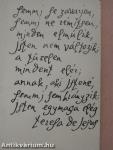 Semmi se zavarjon,
semmi ne rémítsen,
minden elmúlik,
Isten nem változik,
a türelem
mindent elér;
annak, aki Istené,
semmi sem hiányzik,
Isten egymaga elég
Teresa de Jesus